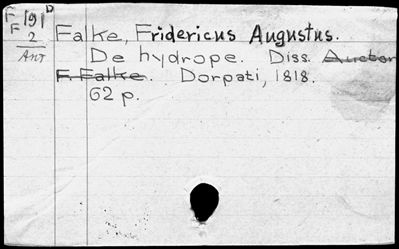 F 191 D
F 2
Falke, Fridericus Augustus.
De hydrope. Diss. Auctor
F. Falke. Dorpati, 1818.
62 p.